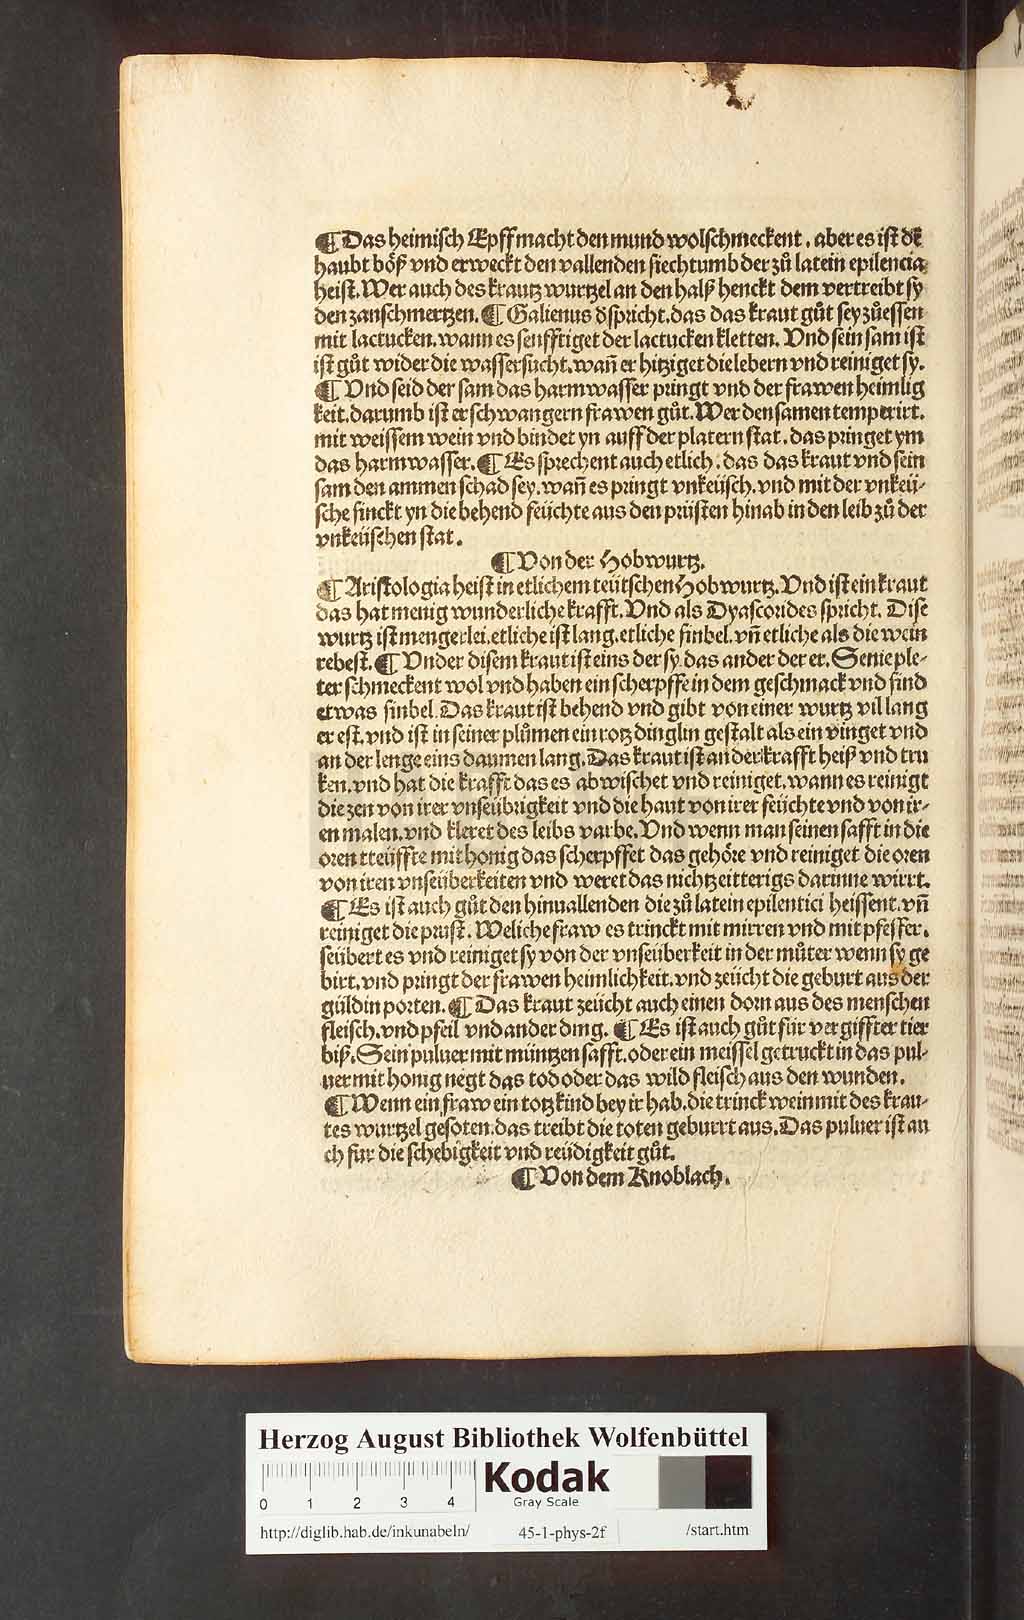 ¶ Das heimisch Epff macht den mund wolschmeckent. aber es ist dē
haubt böß vnd erweckt den vallenden siechtumb der zů latein epilencia
heist. Wer auch des krautz wurtzel an den halß henckt dem vertreibt sy
den zanschmertzen. ¶ Galienus dspricht. das das kraut gůt sey zůessen
mit lactucken. wann es senfftiget der lactucken kletten. Vnd sein sam ist
ist gůt wider die wassersucht. wañ er hitziget die lebern vnd reiniget sy.
¶ Vnd seid der sam das harmwasser pringt vnd der frawen heimlig
keit. darumb ist er schwangern frawen gůt. Wer den samen temperirt.
mit weissem wein vnd bindet yn auff der platern stat. das pringet ym
das harmwasser. ¶ Es sprechent auch etlich. das das kraut vnd sein
sam den ammen schad sey. wañ es pringt vnkeüsch. vnd mit der vnkeü-
sche sinckt yn die behend feüchte aus den prüsten hinab in den leib zů der
vnkeüschen stat.
¶ Von der Hobwurtz.
¶ Aristologia heist in etlichem teütschen Hobwurtz. Vnd ist ein kraut
das hat menig wunderliche krafft. Vnd als Dyascorides spricht. Dise
wurtz ist mengerlei. etliche ist lang. etliche sinbel. vñ etliche als die wein
rebest. ¶ Vnder disem kraut ist eins der sy. das ander der er. Senie ple-
ter schmeckent wol vnd haben ein scherpffe in dem geschmack vnd sind
etwas sinbel. Das kraut ist behend vnd gibt von einer wurtz vil lang
er est. vnd ist in seiner plůmen ein rotz dinglin gestalt als ein vinget vnd
an der lenge eins daumen lang. Das kraut ist an der krafft heiß vnd tru
ken. vnd hat die krafft das es abwischet vnd reiniget. wann es reinigt
die zen von irer vnseübrigkeit vnd die haut von irer feüchte vnd von ir-
en malen. vnd kleret des leibs varbe. Vnd wenn man seinen safft in die
oren treüffte mit honig das scherpffet das gehöre vnd reiniget die oren
von iren vnseüberkeiten vnd weret das nichtz eitterigs darinne wirt.
¶ Es ist auch gůt den hinuallenden die zů latein epilentici heissent. vñ
reiniget die prust. Weliche fraw es trinckt mit mirren vnd mit pfeffer.
seübert es vnd reiniget sy von der vnseüberkeit in der můter wenn sy ge
birt. vnd pringt der frawen heimlichkeit. vnd zeücht die geburt aus der
güldin porten. ¶ Das kraut zeücht auch einen dorn aus des menschen
fleisch. vnd pfeil vnd ander ding. ¶ Es ist auch gůt für vergiffter tier
biß. Sein puluer mit müntzen safft. oder ein meissel getruckt in das pul-
uer mit honig negt das tod oder das wild fleisch aus den wunden.
¶ Wenn ein fraw ein totz kind bey ir hab. die trinck wein mit des krau-
tes wurtzel gesoten. das treibt die toten geburrt aus. Das puluer ist au
ch für die schebigkeit vnd reüdigkeit gůt.
¶ Von dem Knoblach.
Herzog August Bibliothek Wolfenbüttel
0 1 2 3 4
Kodak
Gray Scale
http://diglib.hab.de/inkunabeln/ 45-1-phys-2f /start.htm